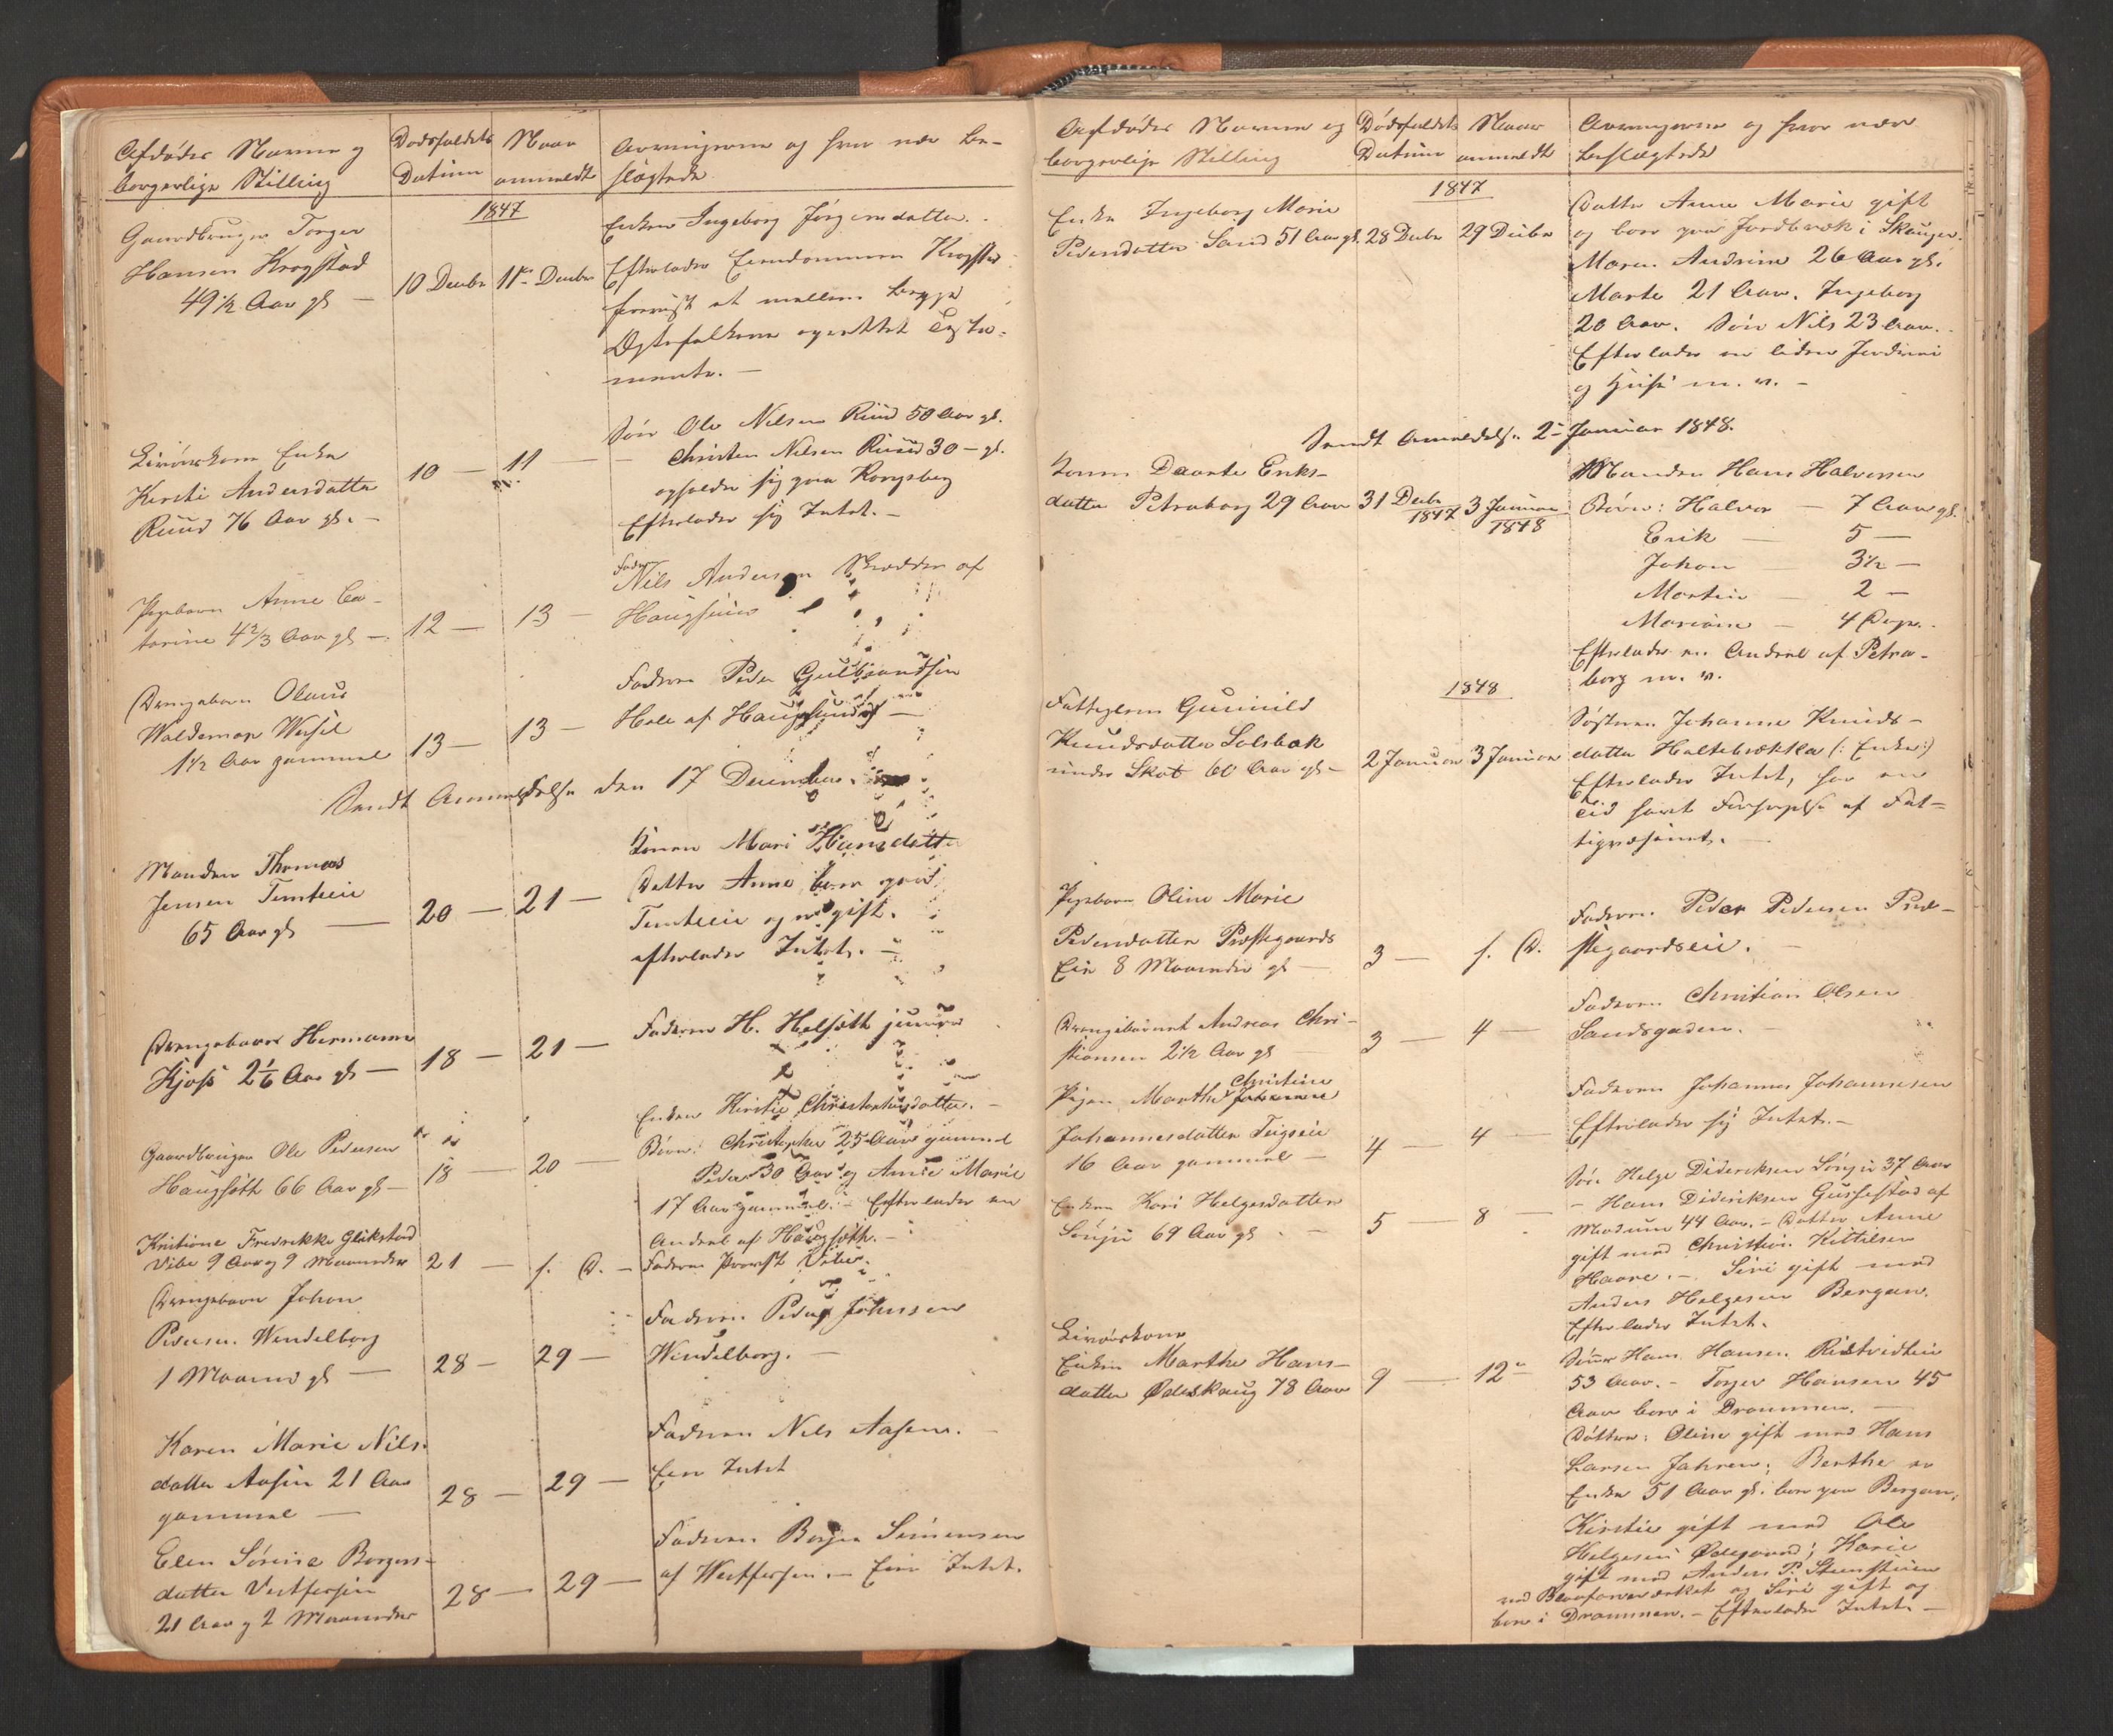 Afdødes Navne og
borgerlige Stilling
Dødsfaldets
Datum
Naar
anmeldt
Arvingerne og hvor nær be-
slægtede
1847
Gaardbruger Torger
Hansen Krogstad
49 1/2 Aar gl —
10 Decbr
11te Decbr
Enken Ingeborg Jørgensdatter.
Efterlader Eiendommen Krogstad
at mellem begge
Ægtefolkene oprettet Testa-
mente. —
Livørskone Enke
Kirsti Andersdatter
Ruud 76 Aar gl. —
10 —
11 —
Søn Ole Nilsen Ruud 50 Aar gl.
— Christen Nilsen Ruud 30 — gl.
opholder sig paa Kongsberg
Efterlader sig Intet. —
Pigebarn Anne Ca-
tarine 4 2/3 Aar gl —
12 —
13 —
Fader
Nils Andersen Skredder af
Haugsund
Drengebarn Olaus
Waldemar Wessel
1 1/2 Aar gammel
13 —
13 —
Faderen Peder Gulbrandsen
Hole af Haugsund —
Sendt Anmeldelse den 17 December.
Manden Thomas
Jensen Temteeie
65 Aar gl —
20 —
21 —
Konen Mari Hansdatter
Datter Anne boer paa
Temteeie og er gift.
efterlader Intet. —
Drengebarn Hermann
Kjøss 2 1/6 Aar gl —
18 —
21 —
Faderen H. Helseth junior
Gaardbruger Ole Pedersen
Haugseth 66 Aar gl —
18 —
20 —
Enken Kirstie Christensdatter. —
Børn: Christopher 25 Aar gammel
Peder 30 Aar og Anne Marie
17 Aar gammel. — Efterlader en
Andeel af Haugseth. —
Kristiane Fredrikke Glükstad
Vibe 9 Aar og 9 Maaneder
21 —
s. D. —
Faderen Provst Vibe.
Drengebarn Johan
Pedersen Wendelborg
1 Maaned gl —
28 —
29 —
Faderen Peder Johnsen
Wendelborg. —
Karen Marie Nils-
datter Aasen 21 Aar
gammel —
28 —
29 —
Faderen Nils Aasen. —
Eier Intet
Elen Sørine Borgers-
datter Vestfossen
21 Aar og 2 Maaneder
28 —
29 —
Faderen Borger Simensen
af Westfossen. — Eier Intet.
Afdødes Navne og
borgerlige Stilling
Dødsfaldets
Datum
Naar
anmeldt
Arvingerne og hvor nær
beslægtede
1847
Enke Ingeborg Marie
Pedersdatter Sand 51 Aar gl.
28 Decbr
29 Decbr
Datter Anne Marie gift
og boer paa Jordbræk i Skauger.
Maren Andrine 26 Aar gl.
Marte 21 Aar. Ingeborg
20 Aar. Søn Nils 23 Aar.
Efterlader en liden Jordvei
og Huse m. v. —
Sendt Anmeldelse 2den Januar 1848.
Konen Daarte Eriks-
datter Petraborg 29 Aar
31 Decbr
1847
3 Januar
1848
Manden Hans Halvorsen
Børn: Halvor — 7 Aar gl.
Erik — 5 —
Johan — 3 1/2 —
Martin — 2 —
Mariane — 4 Dage.
Efterlader en Andeel af Petra-
borg m. v.
1848
Fattiglem Gunnild
Knudsdatter Solsbak
under Skot 60 Aar gl —
2 Januar
3 Januar
Søsteren Johanne Knuds-
datter Holtebrækka (: Enke:)
Efterlader Intet, har en
Tid havt Forsørgelse af Fat-
tigvæsenet. —
Pigebarn Oline Marie
Pedersdatter Præstegaards
Eie 8 Maaneder gl —
3 —
s. D.
Faderen Peder Pedersen Præ-
stegaardseie. —
Drengebarnet Andreas Chri-
stiansen 2 1/2 Aar gl —
3 —
4 —
Faderen Christian Olsen
Sandsgaden.
Christine
Pigen Marthe Johanne
Johannesdatter Teigseie
16 Aar gammel —
4 —
4 —
Faderen Johannes Johannesen
Efterlader sig Intet. —
Enken Kari Helgesdatter
Lønju 69 Aar gl —
5 —
8 —
Søn. Helge Dideriksen Lønju 37 Aar
— Hans Dideriksen Gussestad af
Modum 44 Aar. — Datter Anne
gift med Christian Kittilsen
Haave. — Siri gift med
Anders Helgesen Bergan.
Efterlader Intet.
Livørskone
Enken Marthe Hans-
datter Ødeskaug 78 Aar
9 —
12 —
Sønner Hans Hansen Rustvedteie
53 Aar. — Torger Hansen 45
Aar boer i Drammen. —
Døttre: Oline gift med Hans
Larsen Jahren; Berthe er
Enke 51 Aar gl. boer paa Bergan,
Kirstie gift med Ole
Helgesen Ødegaard; Karie
gift med Anders P. Steensteen
ved Blaafarveværket og Siri gift og
boer i Drammen. — Efterlader Intet. —